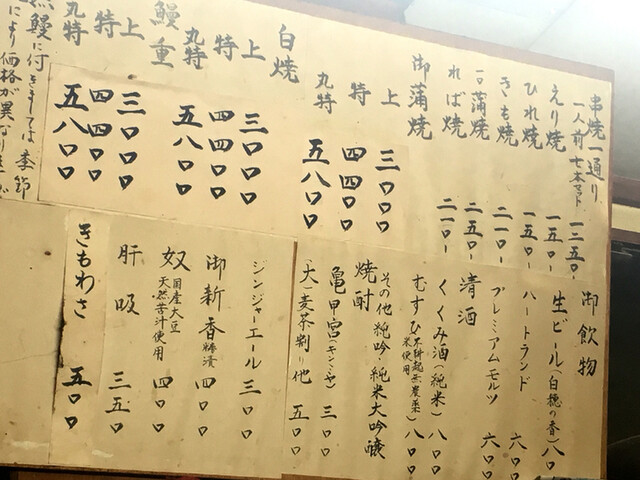 串焼一通り
一人前 七本マデ 一二五〇
えり焼 一五〇-
ひれ焼 一五〇-
きも焼 二一〇-
一口蒲焼 二五〇-
れば焼 二一〇-
御蒲焼
上 三〇〇〇
特 四四〇〇
丸特 五八〇〇
白焼
上 三〇〇〇
特 四四〇〇
丸特 五八〇〇
鰻重
上 三〇〇〇
特 四四〇〇
丸特 五八〇〇
鰻に付きましては季節
により価格が異なりま
御飲物
生ビール(白穂の香) 八〇
ハートランド 六〇〇
プレミアムモルツ 六〇〇
清酒
くくみ酒(純米) 八〇〇
むすひ 不耕起無農薬米使用 八〇〇
その他 純吟・純米大吟醸
焼酎
亀甲宮(キンミヤ) 三〇〇
大麦茶割り他 五〇〇
ジンジャーエール 三〇〇
御新香 糠漬 四〇〇
奴 国産大豆 天然苦汁使用 四〇〇
肝吸 三五〇
きもわさ 五〇〇